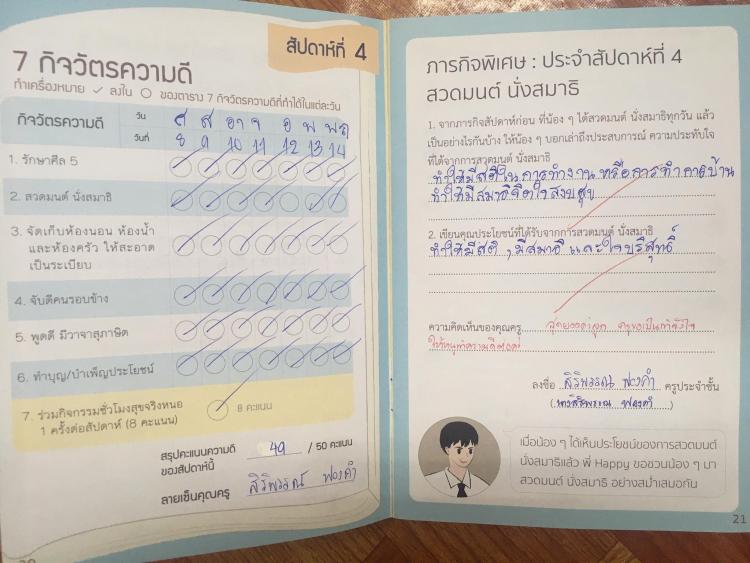 สัปดาห์ที่ 4
7 กิจวัตรความดี
ทำเครื่องหมาย ✓ ลงใน ◯ ของตาราง 7 กิจวัตรความดีที่ทำได้ในแต่ละวัน
กิจวัตรความดี วัน ศ ส อา จ อ พ พฤ
วันที่ 8 9 10 11 12 13 14
1. รักษาศีล 5
2. สวดมนต์ นั่งสมาธิ
3. จัดเก็บห้องนอน ห้องน้ำ
และห้องครัว ให้สะอาด
เป็นระเบียบ
4. จับดีคนรอบข้าง
5. พูดดี มีวาจาสุภาษิต
6. ทำบุญ/บำเพ็ญประโยชน์
7. ร่วมกิจกรรมชั่วโมงสุขจริงหนอ
1 ครั้งต่อสัปดาห์ (8 คะแนน)
8 คะแนน
สรุปคะแนนความดี 49 / 50 คะแนน
ของสัปดาห์นี้
ลายเซ็นคุณครู สิริพรรณ ฟองคำ
ภารกิจพิเศษ : ประจำสัปดาห์ที่ 4
สวดมนต์ นั่งสมาธิ
1. จากภารกิจสัปดาห์ก่อน ที่น้อง ๆ ได้สวดมนต์ นั่งสมาธิทุกวัน แล้ว
เป็นอย่างไรกันบ้าง ให้น้อง ๆ บอกเล่าถึงประสบการณ์ ความประทับใจ
ที่ได้จากการสวดมนต์ นั่งสมาธิ
ทำให้มีสติในการทำงาน หรือการทำการบ้าน
ทำให้มีสมาธิจิตใจสงบสุข
2. เขียนคุณประโยชน์ที่ได้รับจากการสวดมนต์ นั่งสมาธิ
ทำให้มีสติ , มีสมาธิ และใจบริสุทธิ์
ความคิดเห็นของคุณครู สุดยอดค่ะลูก ครูขอเป็นกำลังใจ
ให้หนูทำความดีต่อค่ะ
ลงชื่อ สิริพรรณ ฟองคำ ครูประจำชั้น
(นางสิริพรรณ ฟองคำ)
เมื่อน้อง ๆ ได้เห็นประโยชน์ของการสวดมนต์
นั่งสมาธิแล้ว พี่ Happy ขอชวนน้อง ๆ มา
สวดมนต์ นั่งสมาธิ อย่างสม่ำเสมอกัน
21